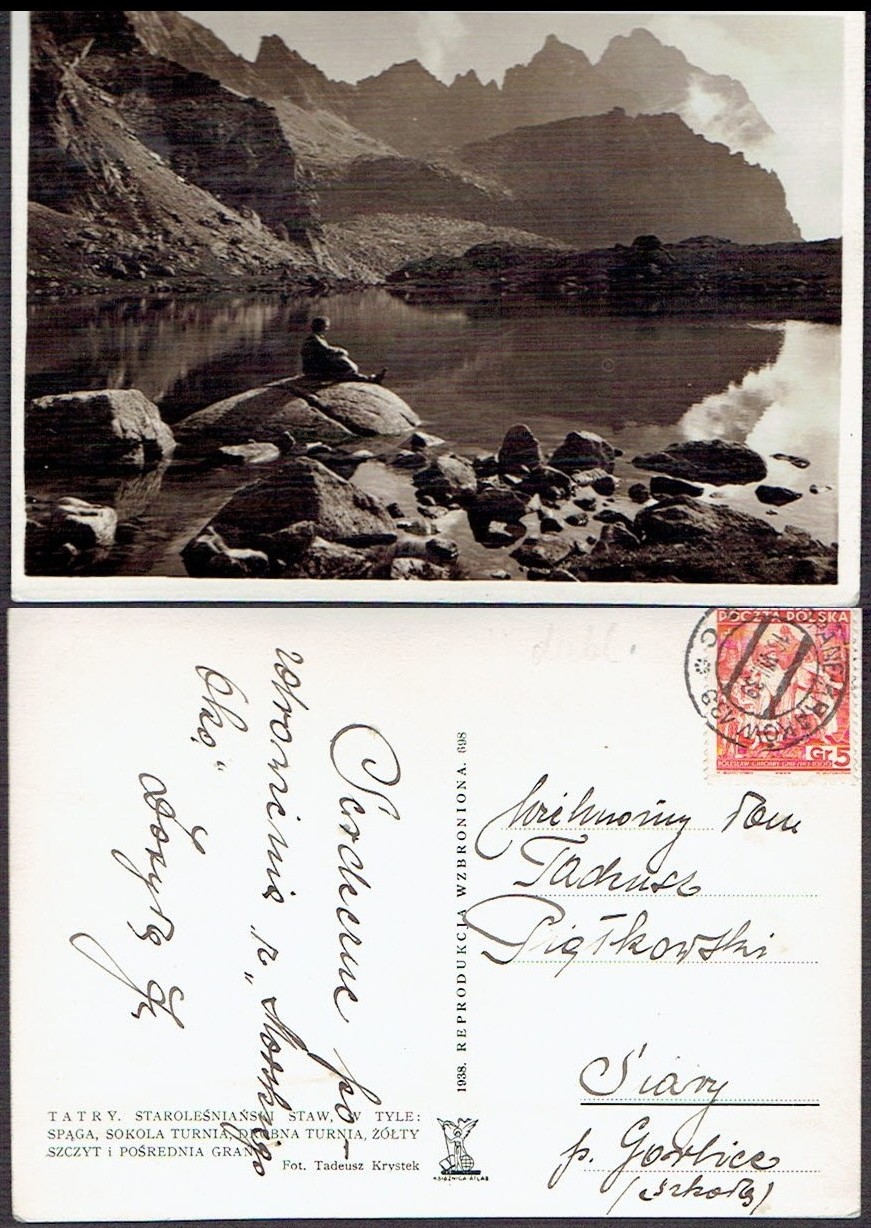 POCZTA POLSKA
Gr 5
BOLESŁAW CHROBRY GNIEZNO 1000
KRAKÓW
Wielmożny Pan
Tadeusz
Piątkowski
Siary
p. Gorlice
(szkoła)
Serdeczne po-
zdrowienia z „Morskiego
Oka"
1938. REPRODUKCJA WZBRONIONA. 698
TATRY. STAROLEŚNIAŃSKI STAW, W TYLE:
SPĄGA, SOKOLA TURNIA, DROBNA TURNIA, ŻÓŁTY
SZCZYT i POŚREDNIA GRAŃ
Fot. Tadeusz Krystek
KSIĄŻNICA-ATLAS